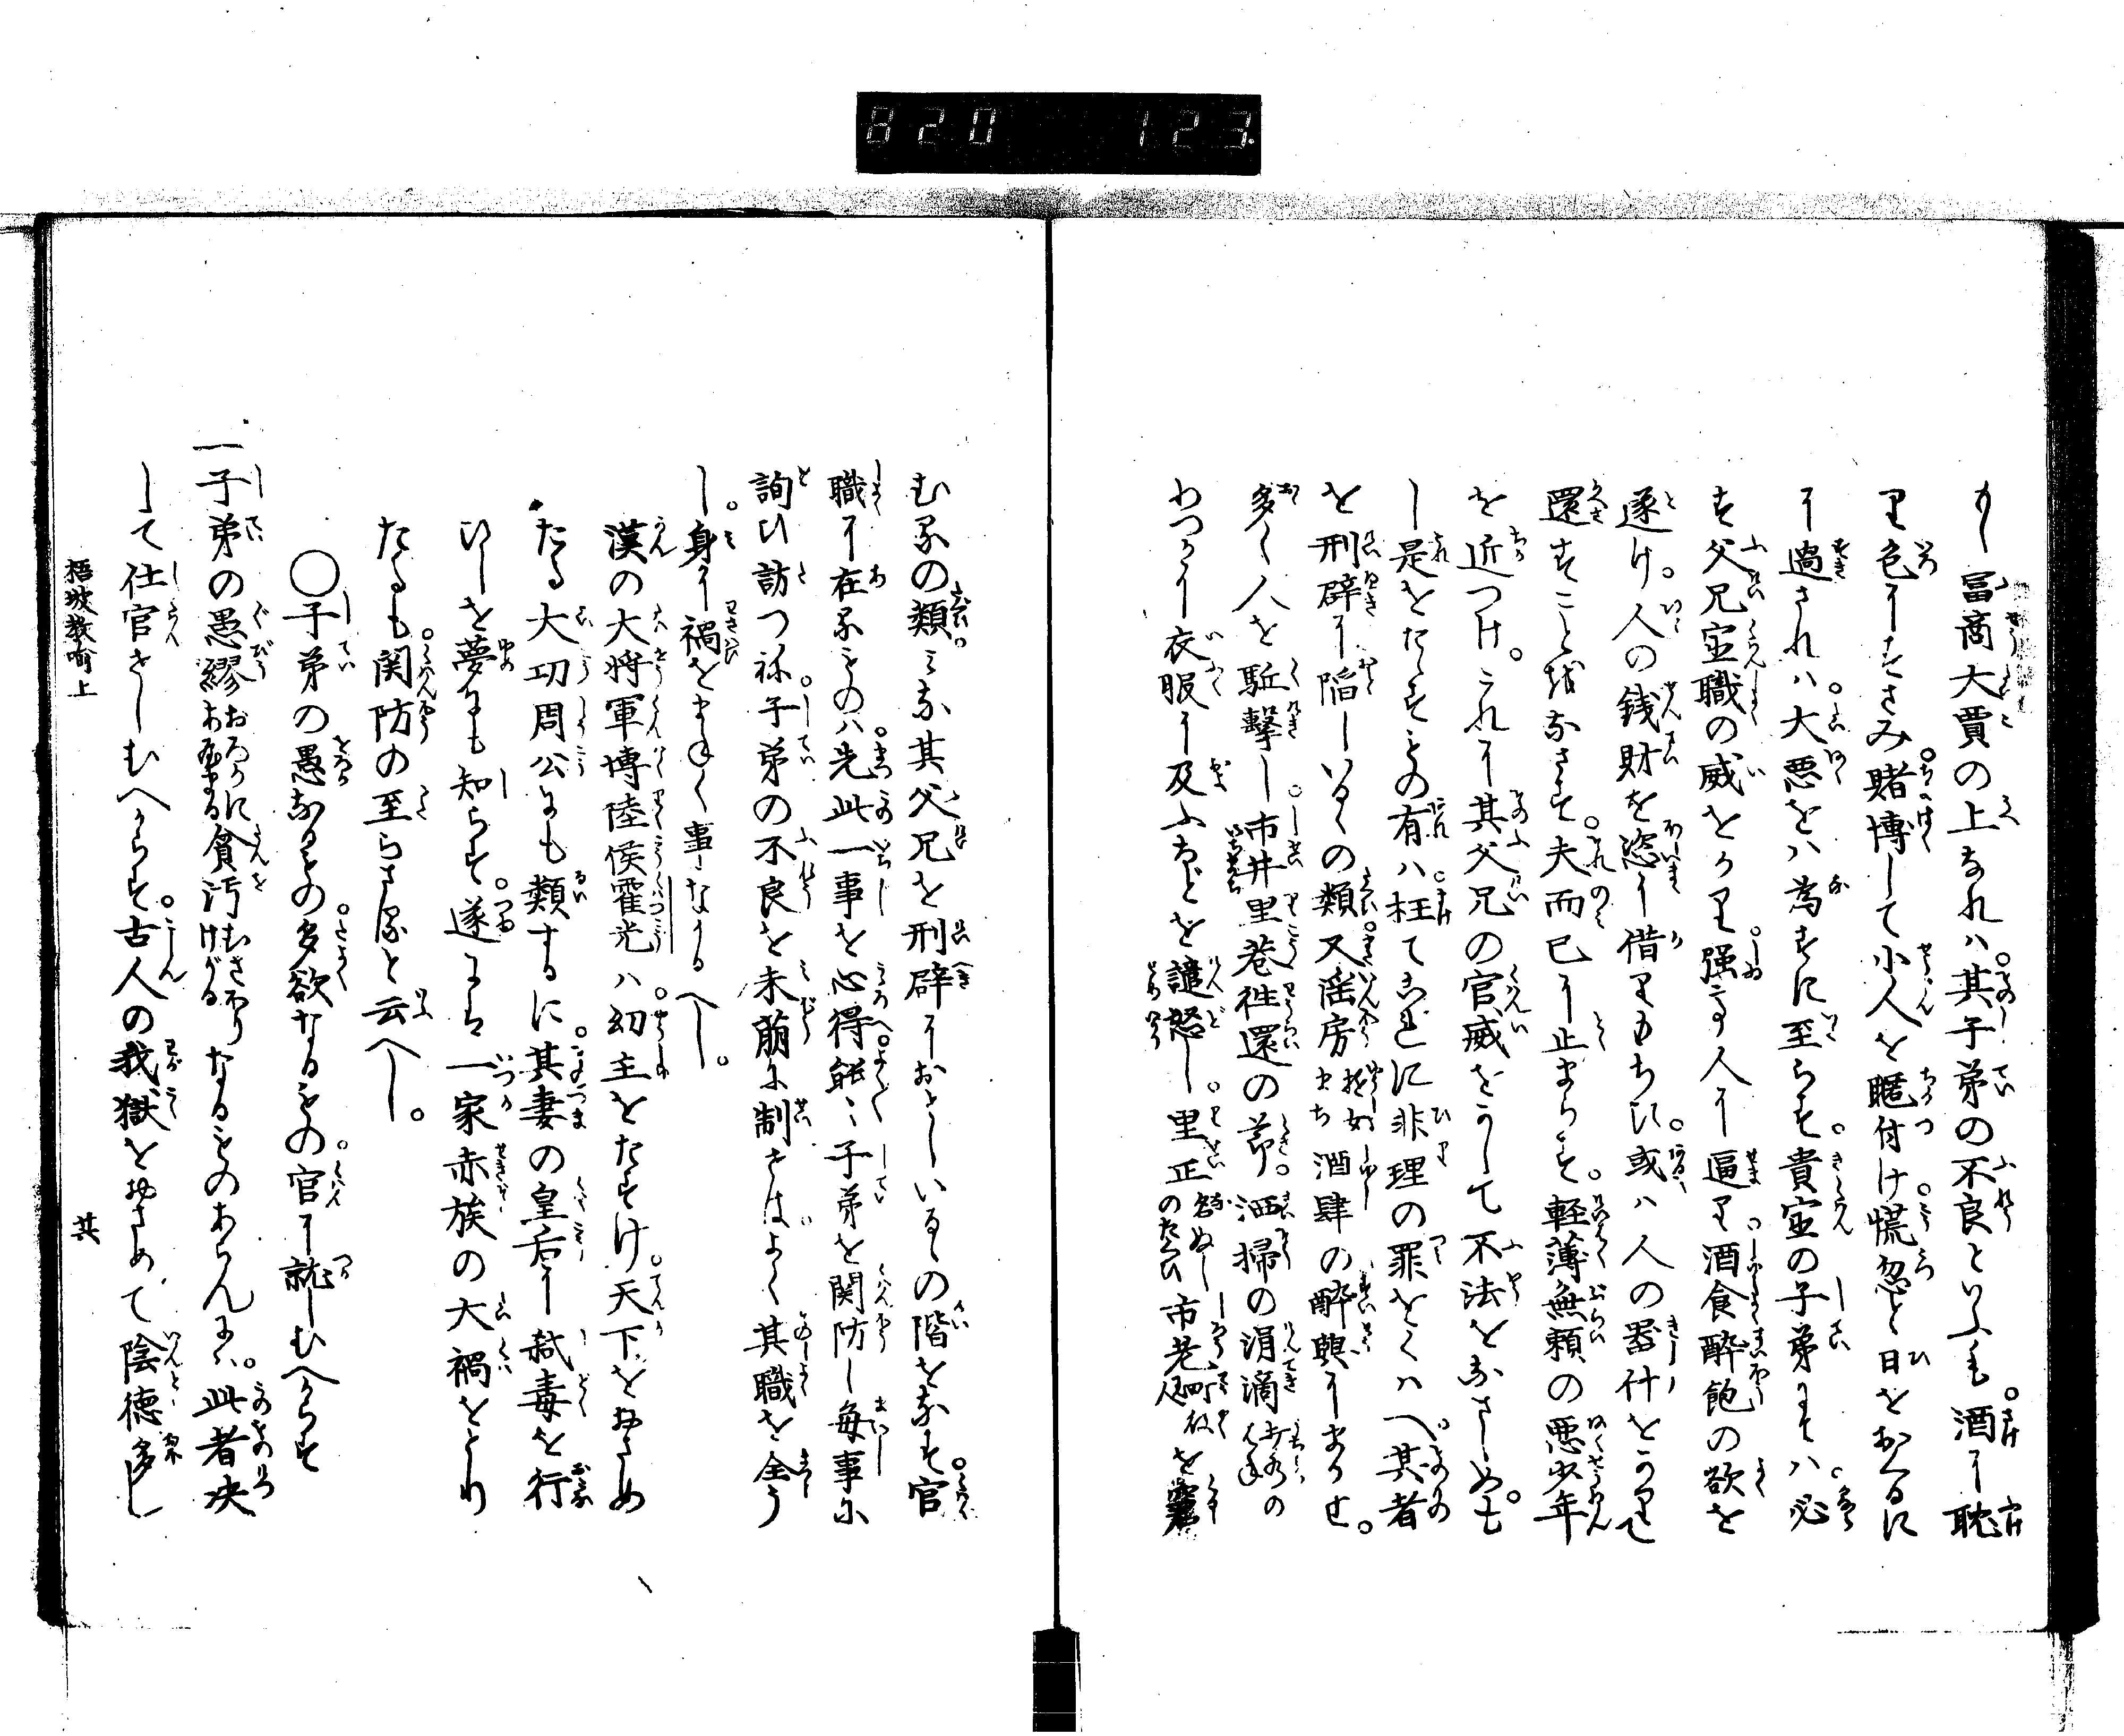 820 123
もし冨商大賈の上なれハ其子弟の不良といふも酒に耽
り色にすさみ賭博して小人を昵付け慌忽と日をおくるに
に過されハ大悪をハ為すに至らす貴宦の子弟にてハ必
す父兄宦職の威をかり強て人に逼り酒食酔飽の欲を
遂け人の銭財を恣に借りもちひ或ハ人の器什をかりて
還すこと越なさす夫而已に止まらす軽薄無頼の悪少年
を近つけこれに其父兄の官威をかして不法をなさしめも
し是をたゝすもの有ハ枉てこれに非理の罪をくハへ其者
を刑辟に陥しいるゝの類又淫房酒肆の酔興にまかせ
多く人を駈撃し市井里巷往還の節洒掃の涓滴の
わつかに衣服に及ふなどを譴怒し里正のたくひ市巷を
むるの類ミな其父兄を刑辟におとしいるゝの階をなす官
職に在るものハ先此一事を心得能々子弟を関防し毎事に
詢ひ訪つね子弟の不良を未萠に制せはよく其職を全う
し身に禍をまねく事なかるへし
漢の大将軍博陸侯霍光ハ幼主をたすけ天下をおさめ
たる大功周公にも類するに其妻の皇后に弑毒を行
ひしを夢にも知らす遂に一家赤族の大禍をとり
たるも関防の至らさると云へし
〇子弟の愚なるもの多欲なるもの官に就しむへからす
一子弟の愚繆貪汚なるものあらんに此者决
して仕官さしむへからす古人の我獄をおさめて陰徳多し
梧坡教喩上
其